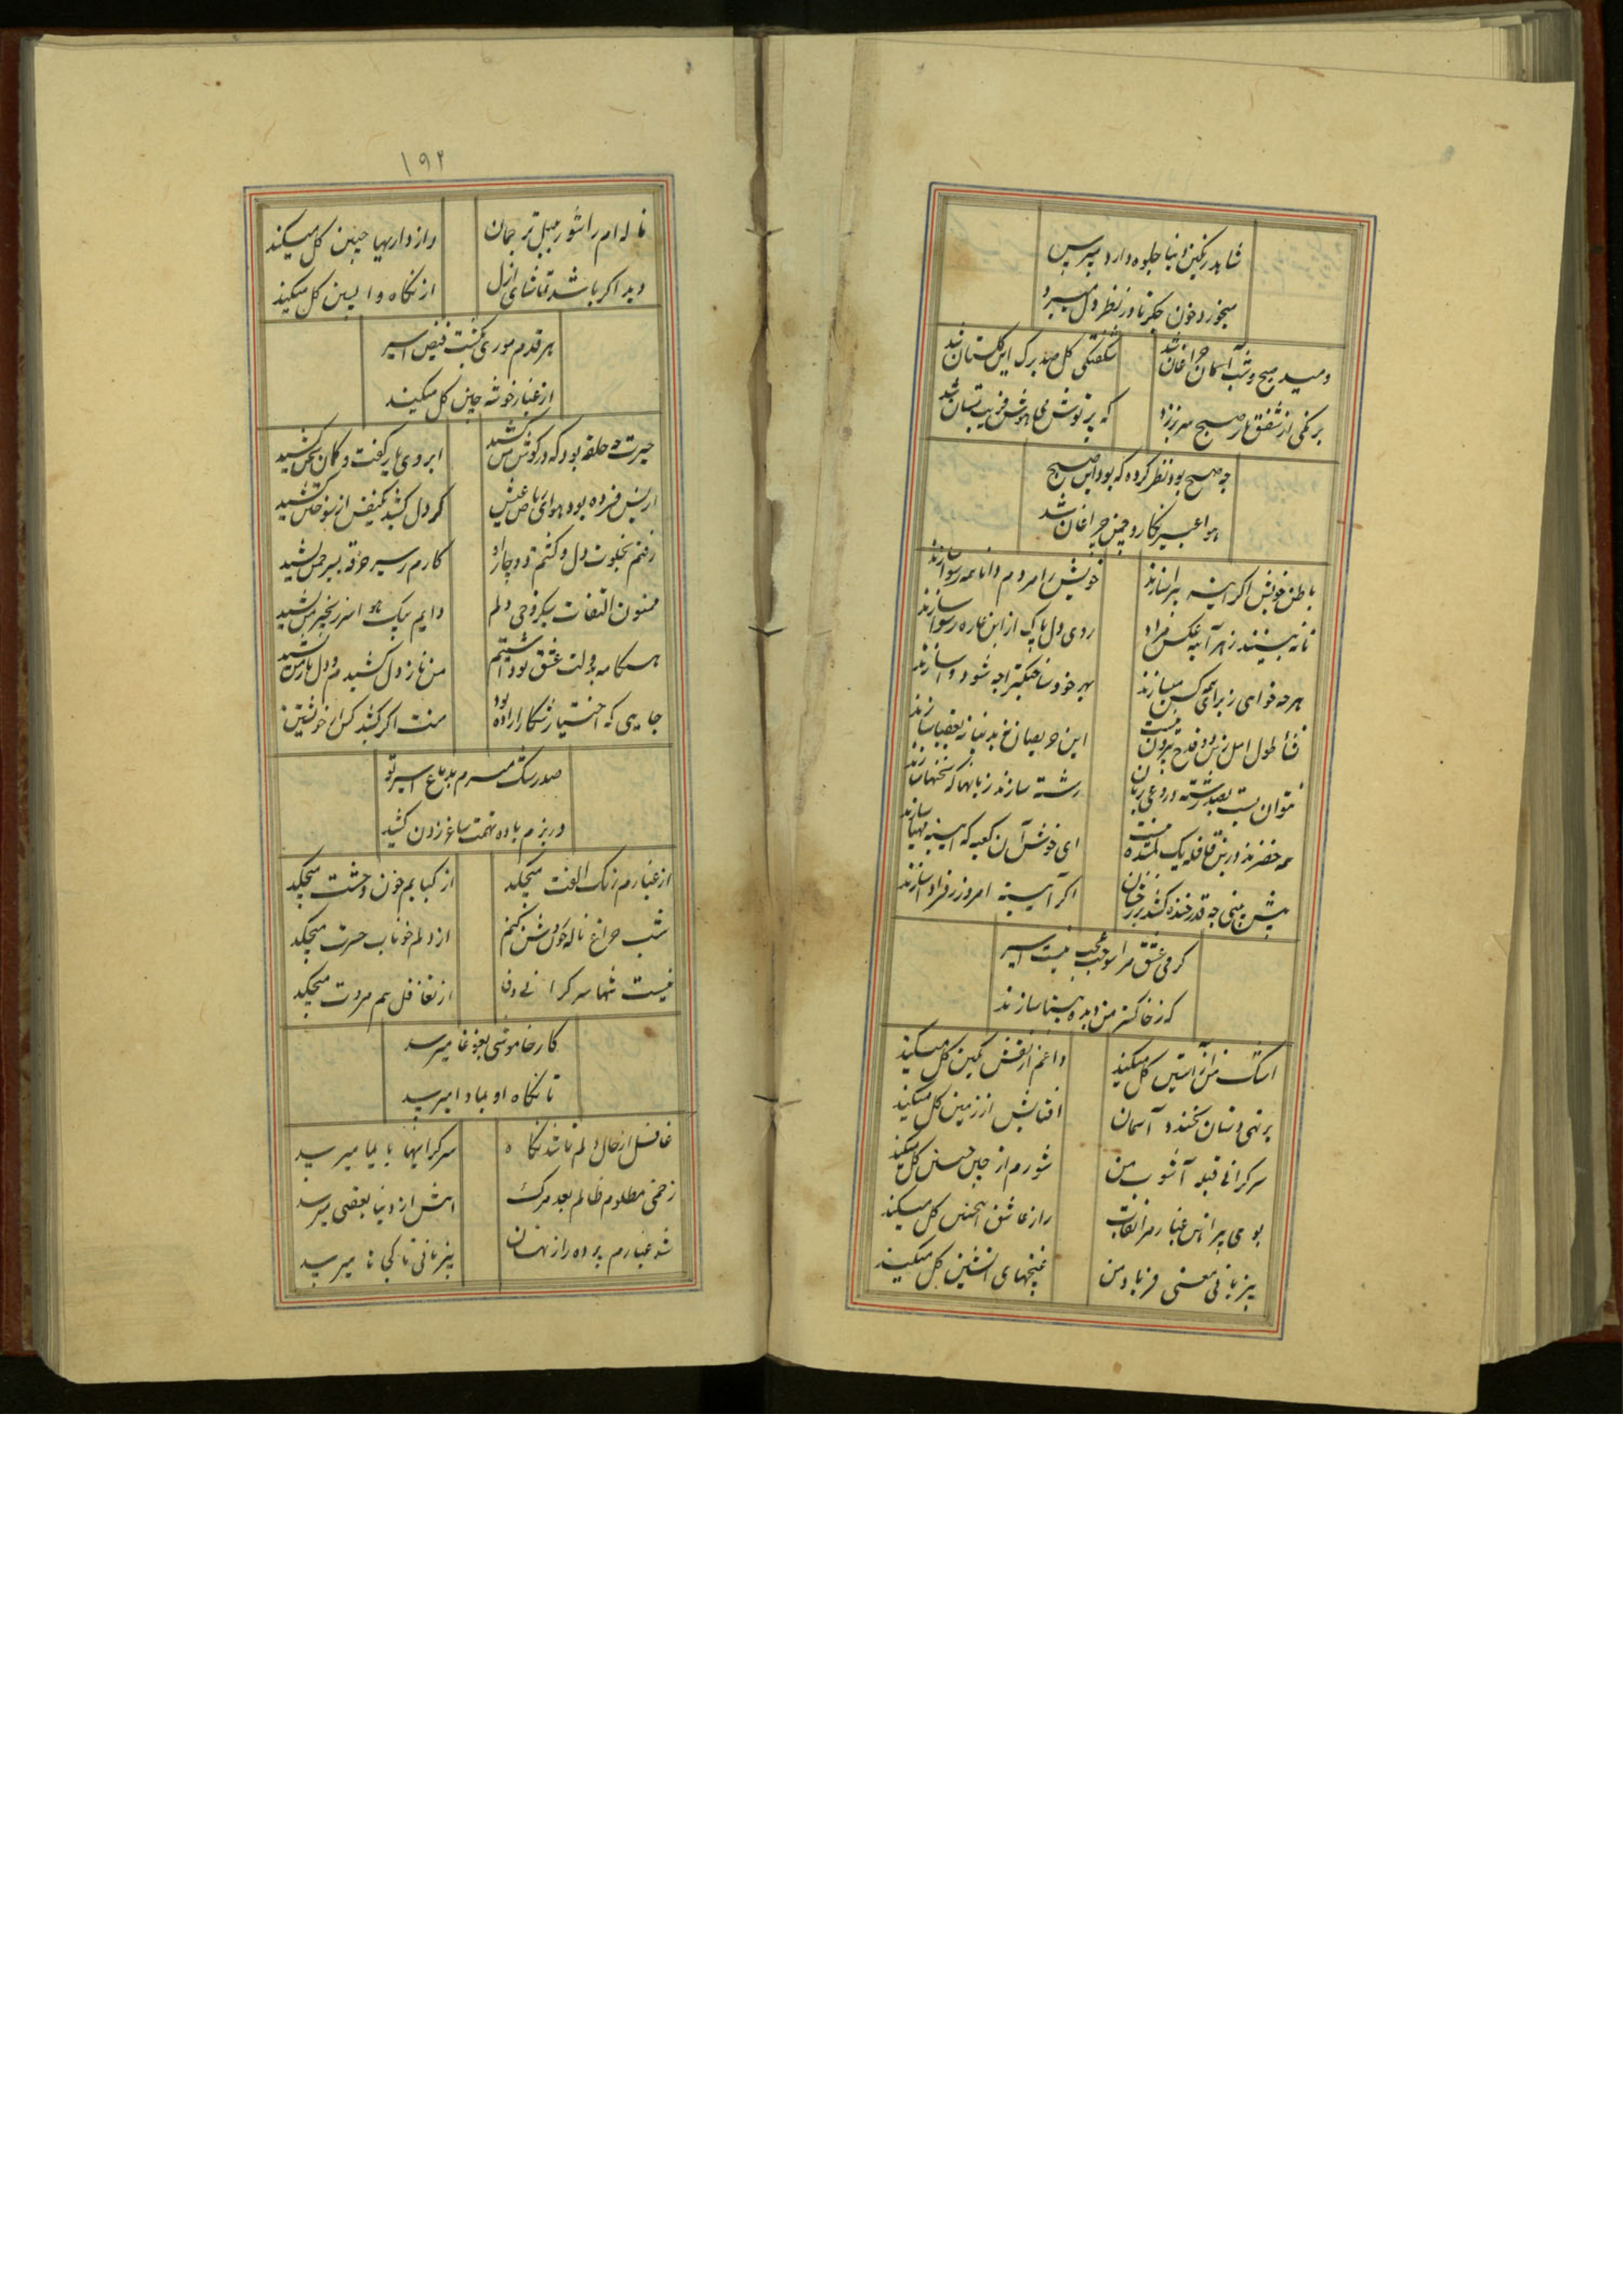 شاهد رنگین دنیا جلوه دارد مپرس
میخورد خون جگر تا در نظر دل میبرد
دمید صبح و شب آسمان چراغان شد
شکفتگی گل صد برک این گلستان شد
برنگی از شفق بهار صبح سر برزد
که پرتوش می بیهوش فریب مستان شد
چه صبح بود نظر کرده که بود این صبح
هوا عبیر نکار و چمن چراغان شد
باطن خویش اگر آینه سیما سازند
خویش را مردم دانا همه رسوا سازند
تا نه بینند ز هر آینه عکس مراد
روی دل پاک از این
هرچه خواهی ز برای همه کس میسازند
بهر خود ساختگیها چه شود وا سازند
این حریصان
نتوان بست بصد رشته دروغی بزبان
رشته سازند زبانها که سخنها سازند
همه خضرند درین قافله یک گمشده نیست
ای خوش آن کعبه که
پیش بینی چه قدر خنده کند بر
اگر آیینه امروز ز فردا سازند
گرمی عشق مرا سوخت عجب نیست اسیر
که ز خاکستر من دیده بینا سازند
اشک من از آستین گل میکند
داغم از نقش نگین گل میکند
بر تهی دستان نخندد آسمان
آفتابش از زمین گل میکند
سرگرانی قبله آشوب من
شورم از چین جبین گل میکند
بوی پیراهن غبارم را نقاب
راز عاشق اینچنین گل میکند
بیزبانی معنی فریاد من
غنچهای آتشین گل میکند
۱۹۲
ناله ام را شور بلبل ترجمان
رازداریها چنین گل میکند
دید اگر باشد تماشای ازل
از نگاه واپسین گل میکند
هر قدم موری بکشت فیض اسیر
از غبار خوشه چین گل میکند
حیرت چه حلقه بود که در گوش من کشید
ابروی یار گفت و کمان بمن کشید
از بس فسرده بود هوای ریاض عیش
گر دل کشید یک نفس از سوختن کشید
رفتم بخلوت دل و گشتم دوچار او
کارم ز سیر خرقه بسیر چمن کشید
ممنون التفات سبکروحی دلم
دایم
هنگامه دولت عشق تو داشتیم
من ناز دل کشیدم و دل ناز من کشید
جایی که اختیار شکار اراده بود
منت اگر کشید کس از خویشتن کشید
صد رنگ میبرم بدماغ اسیر تو
در بزم باده تهمت ساغر زدن کشید
از غبارم رنگ الفت میچکد
از کبابم خون وحشت میچکد
شب چراغ ناله چون روشن کنم
از دلم خوناب حسرت میچکد
نیست تنها سرگرانی وفا
از تغافل هم مروت میچکد
کار خاموشی بغوغا میرسد
تا نگاه او بدادا میرسد
غافل از حال دلم باشد نگاه
سرگرانیها بایما میرسد
زخمی مظلوم ظالم بعد مرگ
آتش از دنیا بعقبی میرسد
شد غبارم پرده راز نهان
بیزبانی تا کجا تا میرسد